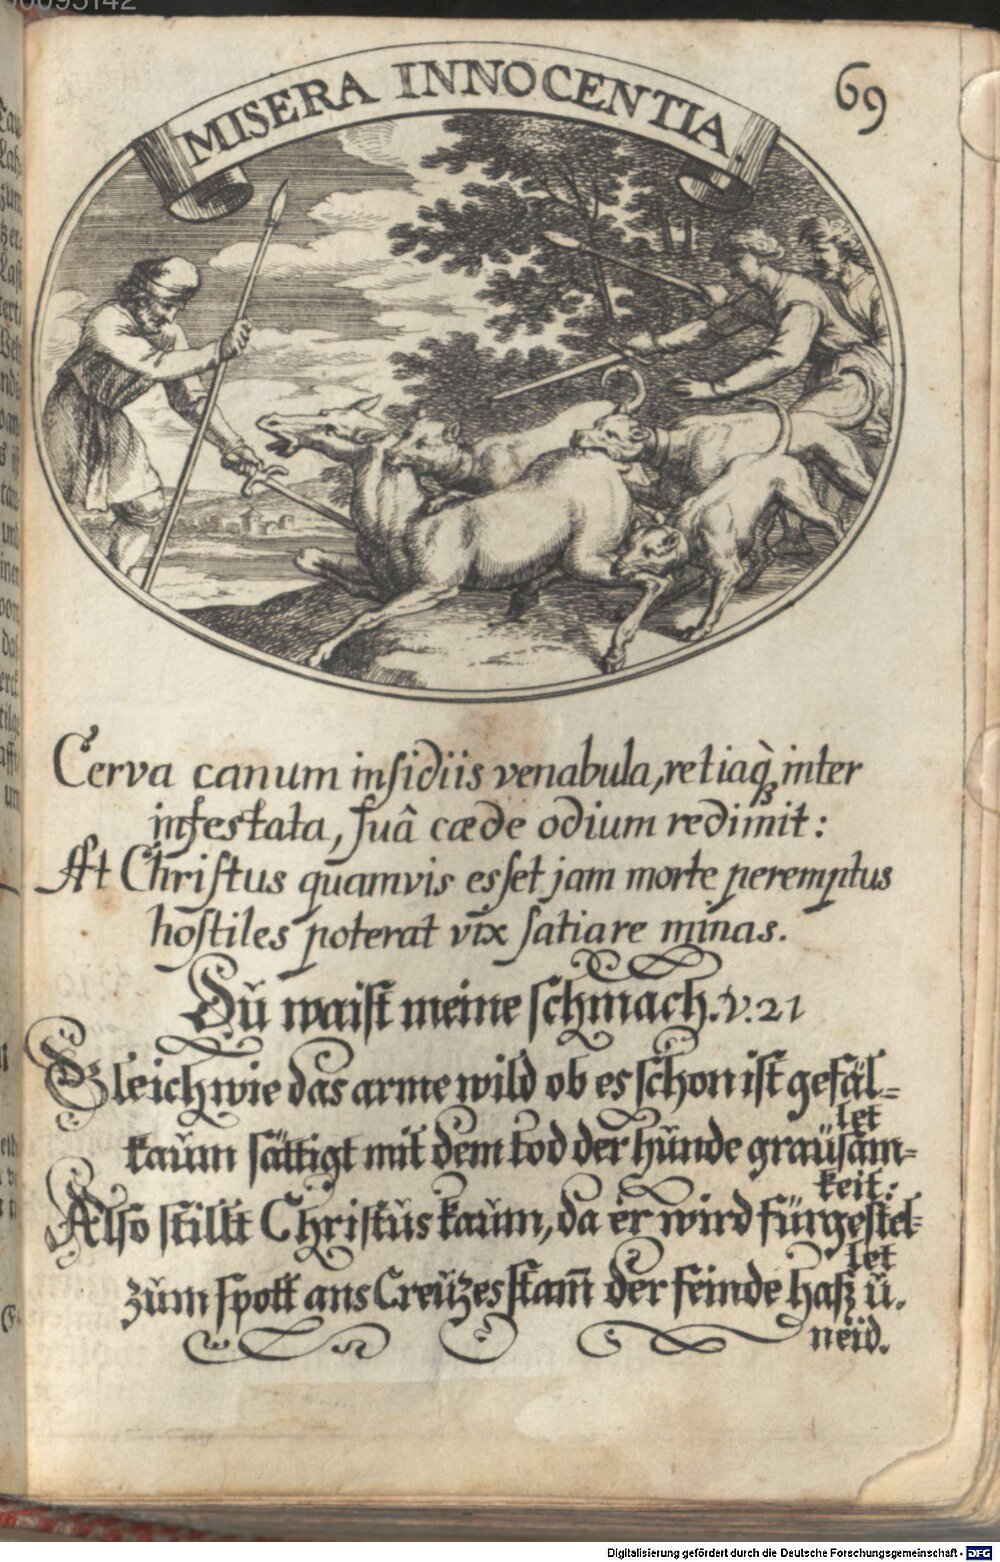 MISERA INNOCENTIA.
69
Cerva canum insidiis venabula, retiaq; inter
infestata, suâ cæde odium redimit:
At Christus quamvis esset jam morte peremptus
hostiles poterat vix satiare minas.
Dŭ waist meine schmach. v. 21
Gleichwie das arme wild ob es schon ist gefäl=
let
kaŭm sättigt mit dem tod der hŭnde graŭsam=
keit:
Also stillt Christŭs kaŭm, da er wird fürgestel=
let
zŭm spott ans Creŭtzes stam̃ der feinde haß ŭ.
neid.
Digitalisierung gefördert durch die Deutsche Forschungsgemeinschaft - DFG